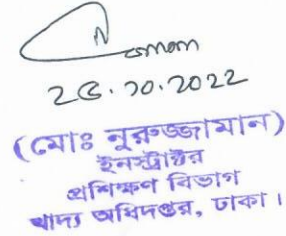 ২৫.১০.2022
(মোঃ নুরুজ্জামান)
ইনস্ট্রাক্টর
প্রশিক্ষণ বিভাগ
খাদ্য অধিদপ্তর, ঢাকা।